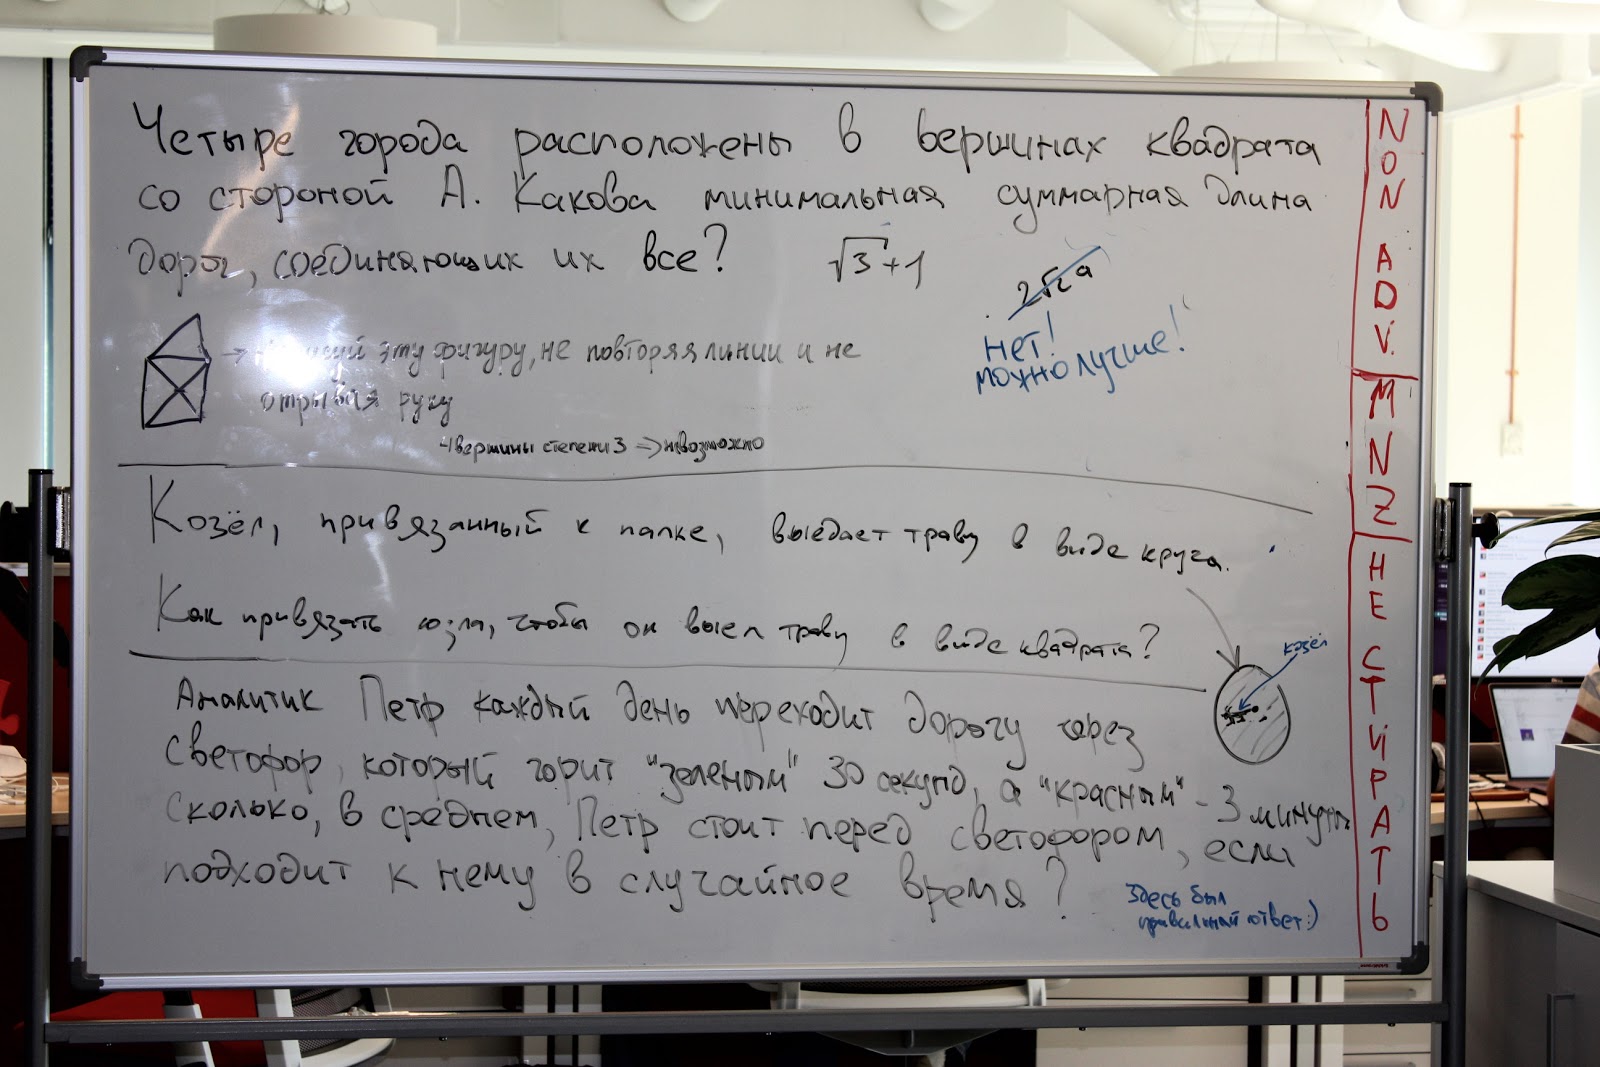 Четыре города расположены в вершинах квадрата
со стороной А. Какова минимальная суммарная длина
дорог, соединяющих их все? √3+1
2√2 a
нет!
можно лучше!
эту фигуру, не повторяя линии и не
отрывая руку
4 вершины степени 3 => невозможно
Козёл, привязанный к палке, выедает траву в виде круга.
Как привязать козла, чтобы он выел траву в виде квадрата?
козёл
Аналитик Петр каждый день переходит дорогу через
светофор, который горит "зеленым" 30 секунд, а "красным" - 3 минуты
Сколько, в среднем, Петр стоит перед светофором, если
подходит к нему в случайное время?
Здесь был
правильный ответ :)
NON ADV.
MNZ
НЕ СТИРАТЬ